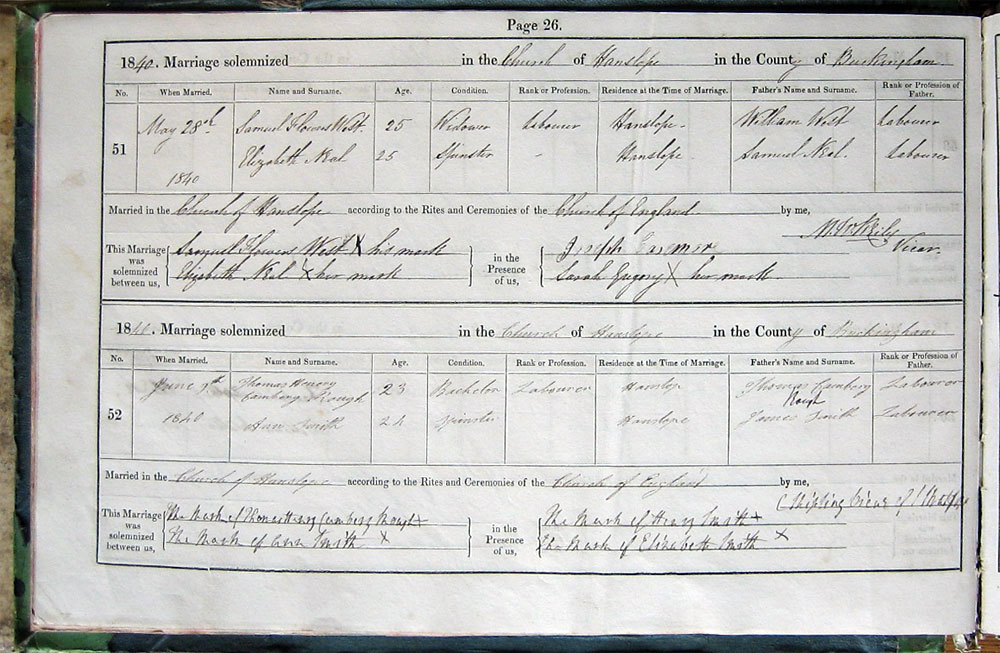 Page 26.
1840. Marriage solemnized in the Church of Hanslope in the County of Buckingham.
No. When Married. Name and Surname. Age. Condition. Rank or Profession. Residence at the Time of Marriage. Father's Name and Surname. Rank or Profession of Father.
51 May 28th Samuel Flowers West. 25 Widower Labourer Hanslope William West Labourer
Elizabeth Neal 25 Spinster - Hanslope Samuel Neal. Labourer
1840
Married in the Church of Hanslope according to the Rites and Ceremonies of the Church of England by me,
Vicar.
This Marriage was solemnized between us, Samuel Flowers West X his mark in the Presence of us, Joseph
Elizabeth Neal X her mark Sarah Gregory X her mark
1840. Marriage solemnized in the Church of Hanslope in the County of Buckingham
No. When Married. Name and Surname. Age. Condition. Rank or Profession. Residence at the Time of Marriage. Father's Name and Surname. Rank or Profession of Father.
52 June 9th Thomas Henery Rough 23 Bachelor Labourer Hanslope Thomas Rough Labourer
1840 Ann Smith 24 Spinster Hanslope James Smith Labourer
Married in the Church of Hanslope according to the Rites and Ceremonies of the Church of England by me,
Vicar of
This Marriage was solemnized between us, The Mark of Thomas Henry Rough X in the Presence of us, The Mark of Henry Smith X
The Mark of Ann Smith X The Mark of Elizabeth Smith X